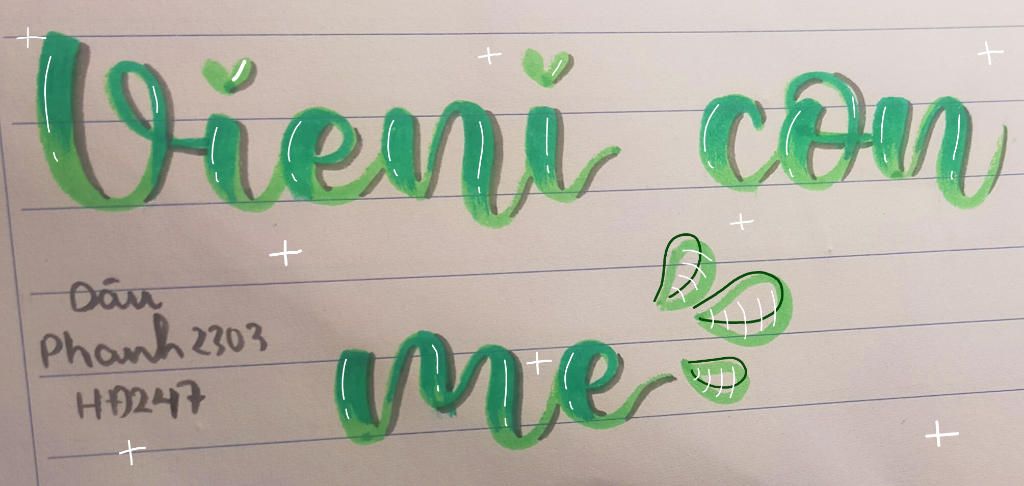 Vieni con
me
Dâu
Phanh2303
HĐ247